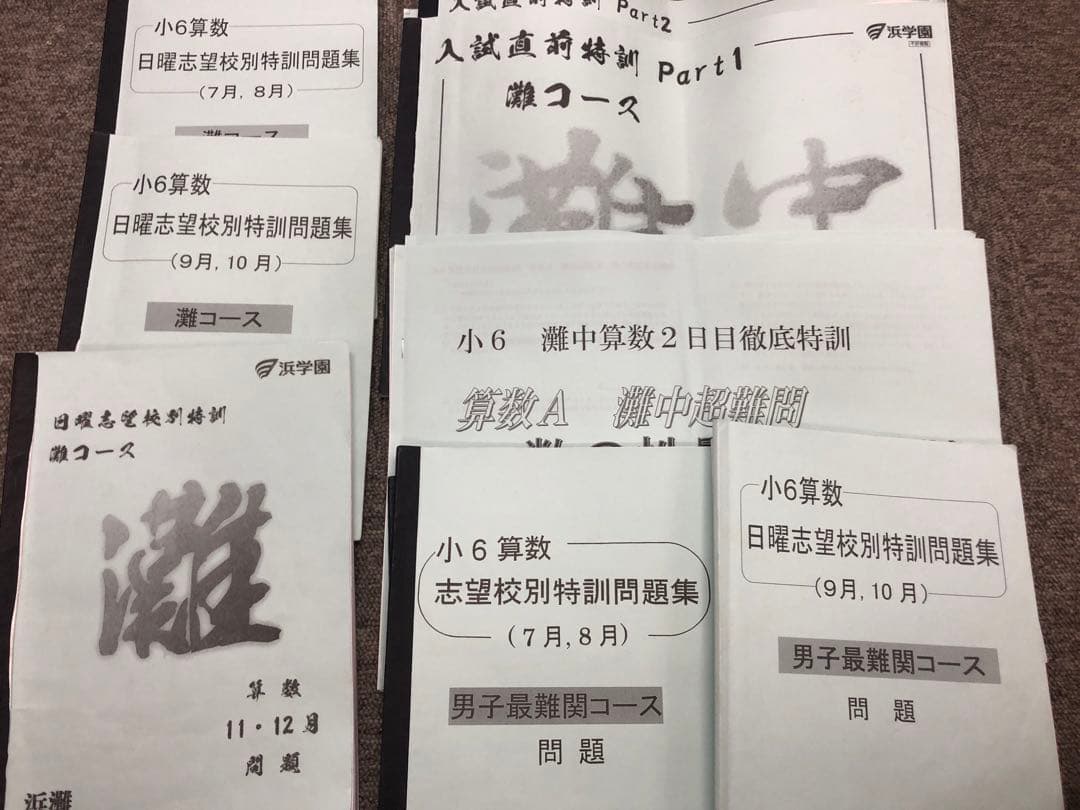 小6算数
日曜志望校別特訓問題集
(7月, 8月)
灘コース
小6算数
日曜志望校別特訓問題集
(9月, 10月)
灘コース
浜学園
日曜志望校別特訓
灘コース
灘
算数
11・12月
問題
浜灘
入試直前特訓 Part2
浜学園
入試直前特訓 Part1
灘コース
灘中
小6 灘中算数2日目徹底特訓
算数A 灘中超難問
小6算数
志望校別特訓問題集
(7月, 8月)
男子最難関コース
問題
小6算数
日曜志望校別特訓問題集
(9月, 10月)
男子最難関コース
問題